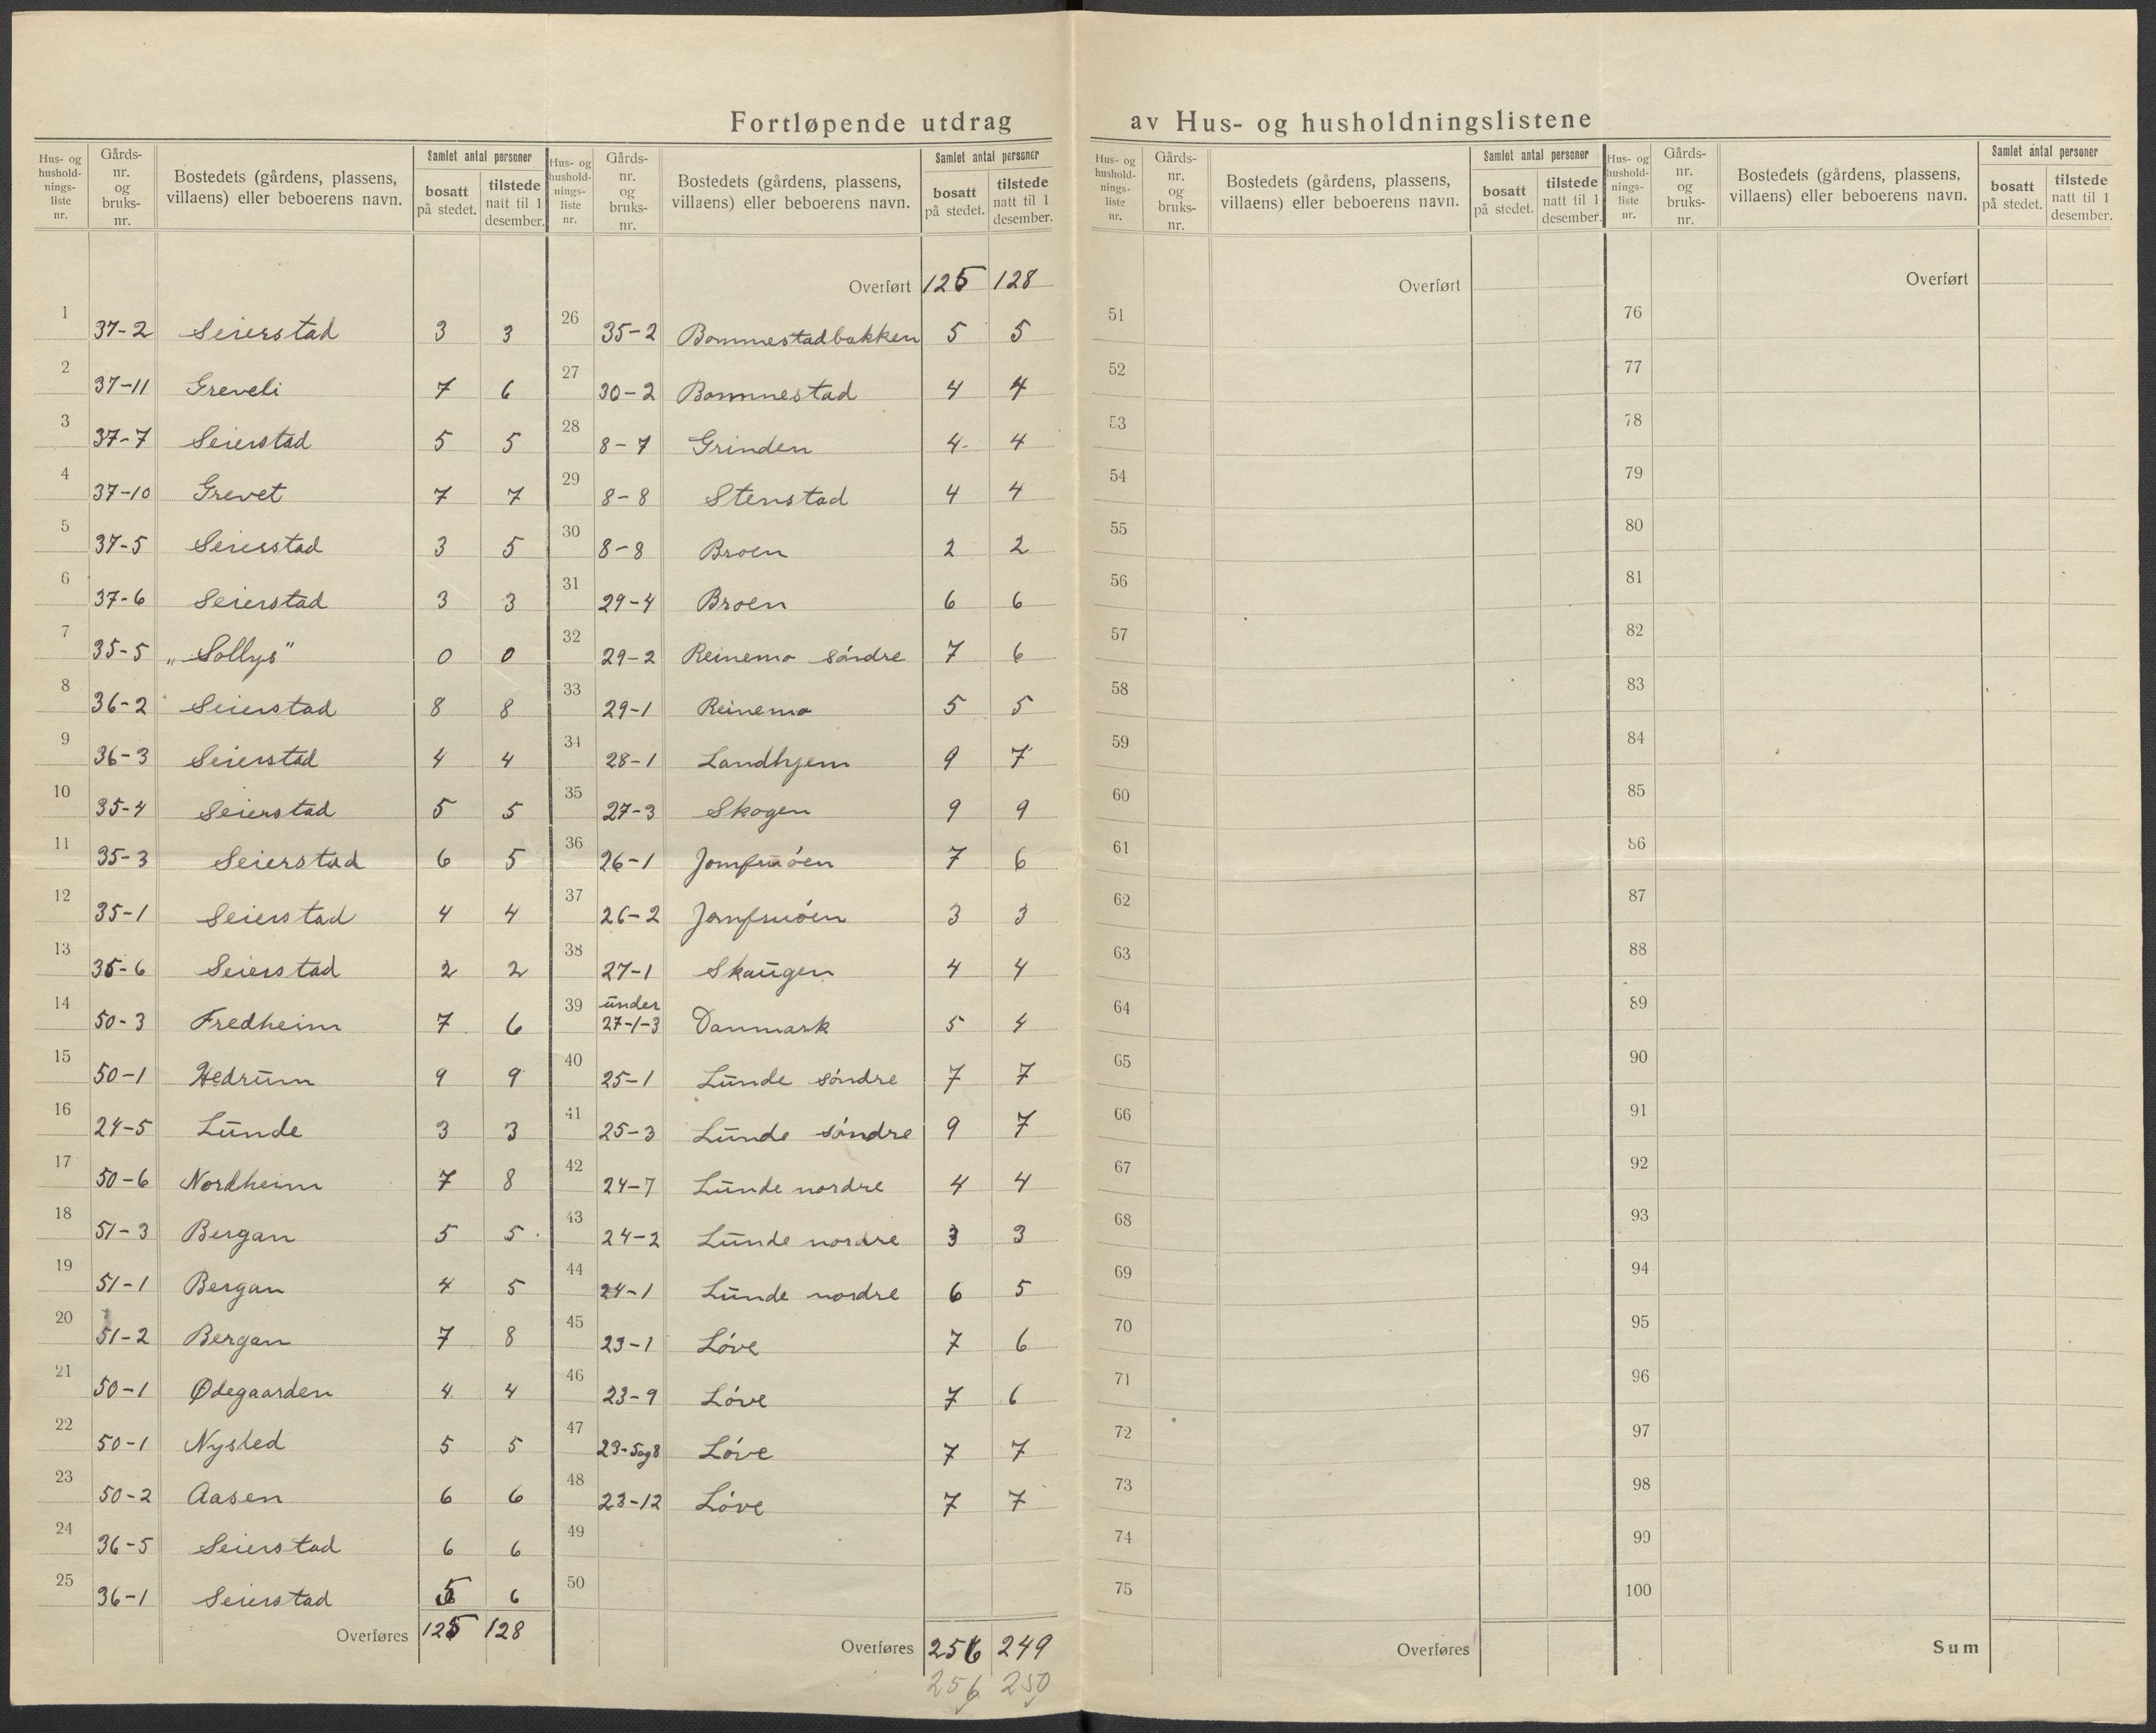 Fortløpende utdrag av Hus- og husholdningslistene
Hus- og hushold- nings- liste nr. | Gårds- nr. og bruks- nr. | Bostedets (gårdens, plassens, villaens) eller beboerens navn. | Samlet antal personer | bosatt på stedet. | tilstede natt til 1 desember.
1 37-2 Seierstad 3 3
2 37-11 Greveli 7 6
3 37-7 Seierstad 5 5
4 37-10 Grevet 7 7
5 37-5 Seierstad 3 5
6 37-6 Seierstad 3 3
7 35-5 „Sollys" 0 0
8 36-2 Seierstad 8 8
9 36-3 Seierstad 4 4
10 35-4 Seierstad 5 5
11 35-3 Seierstad 6 5
12 35-1 Seierstad 4 4
13 35-6 Seierstad 2 2
14 50-3 Fredheim 7 6
15 50-1 Hedrum 9 9
16 24-5 Lunde 3 3
17 50-6 Nordheim 7 8
18 51-3 Bergan 5 5
19 51-1 Bergan 4 5
20 51-2 Bergan 7 8
21 50-1 Ødegaarden 4 4
22 50-1 Nysted 5 5
23 50-2 Aasen 6 6
24 36-5 Seierstad 6 6
25 36-1 Seierstad 5 6
Overføres 125 128
Hus- og hushold- nings- liste nr. | Gårds- nr. og bruks- nr. | Bostedets (gårdens, plassens, villaens) eller beboerens navn. | Samlet antal personer | bosatt på stedet. | tilstede natt til 1 desember.
Overført 125 128
26 35-2 Bommestadbakken 5 5
27 30-2 Bommestad 4 4
28 8-7 Grinden 4 4
29 8-8 Stenstad 4 4
30 8-8 Broen 2 2
31 29-4 Broen 6 6
32 29-2 Reinemo söndre 7 6
33 29-1 Reinemo 5 5
34 28-1 Landhjem 9 7
35 27-3 Skogen 9 9
36 26-1 Jomfruöen 7 6
37 26-2 Jomfruöen 3 3
38 27-1 Skaugen 4 4
39 under 27-1-3 Danmark 5 4
40 25-1 Lunde söndre 7 7
41 25-3 Lunde söndre 9 7
42 24-7 Lunde nordre 4 4
43 24-2 Lunde nordre 3 3
44 24-1 Lunde nordre 6 5
45 23-1 Löve 7 6
46 23-9 Löve 7 6
47 23-5og8 Löve 7 7
48 23-12 Löve 7 7
49
50
Overføres 256 249
256 250
Hus- og hushold- nings- liste nr. | Gårds- nr. og bruks- nr. | Bostedets (gårdens, plassens, villaens) eller beboerens navn. | Samlet antal personer | bosatt på stedet. | tilstede natt til 1 desember.
Overført
51
52
53
54
55
56
57
58
59
60
61
62
63
64
65
66
67
68
69
70
71
72
73
74
75
Overføres
Hus- og hushold- nings- liste nr. | Gårds- nr. og bruks- nr. | Bostedets (gårdens, plassens, villaens) eller beboerens navn. | Samlet antal personer | bosatt på stedet. | tilstede natt til 1 desember.
Overført
76
77
78
79
80
81
82
83
84
85
86
87
88
89
90
91
92
93
94
95
96
97
98
99
100
Sum